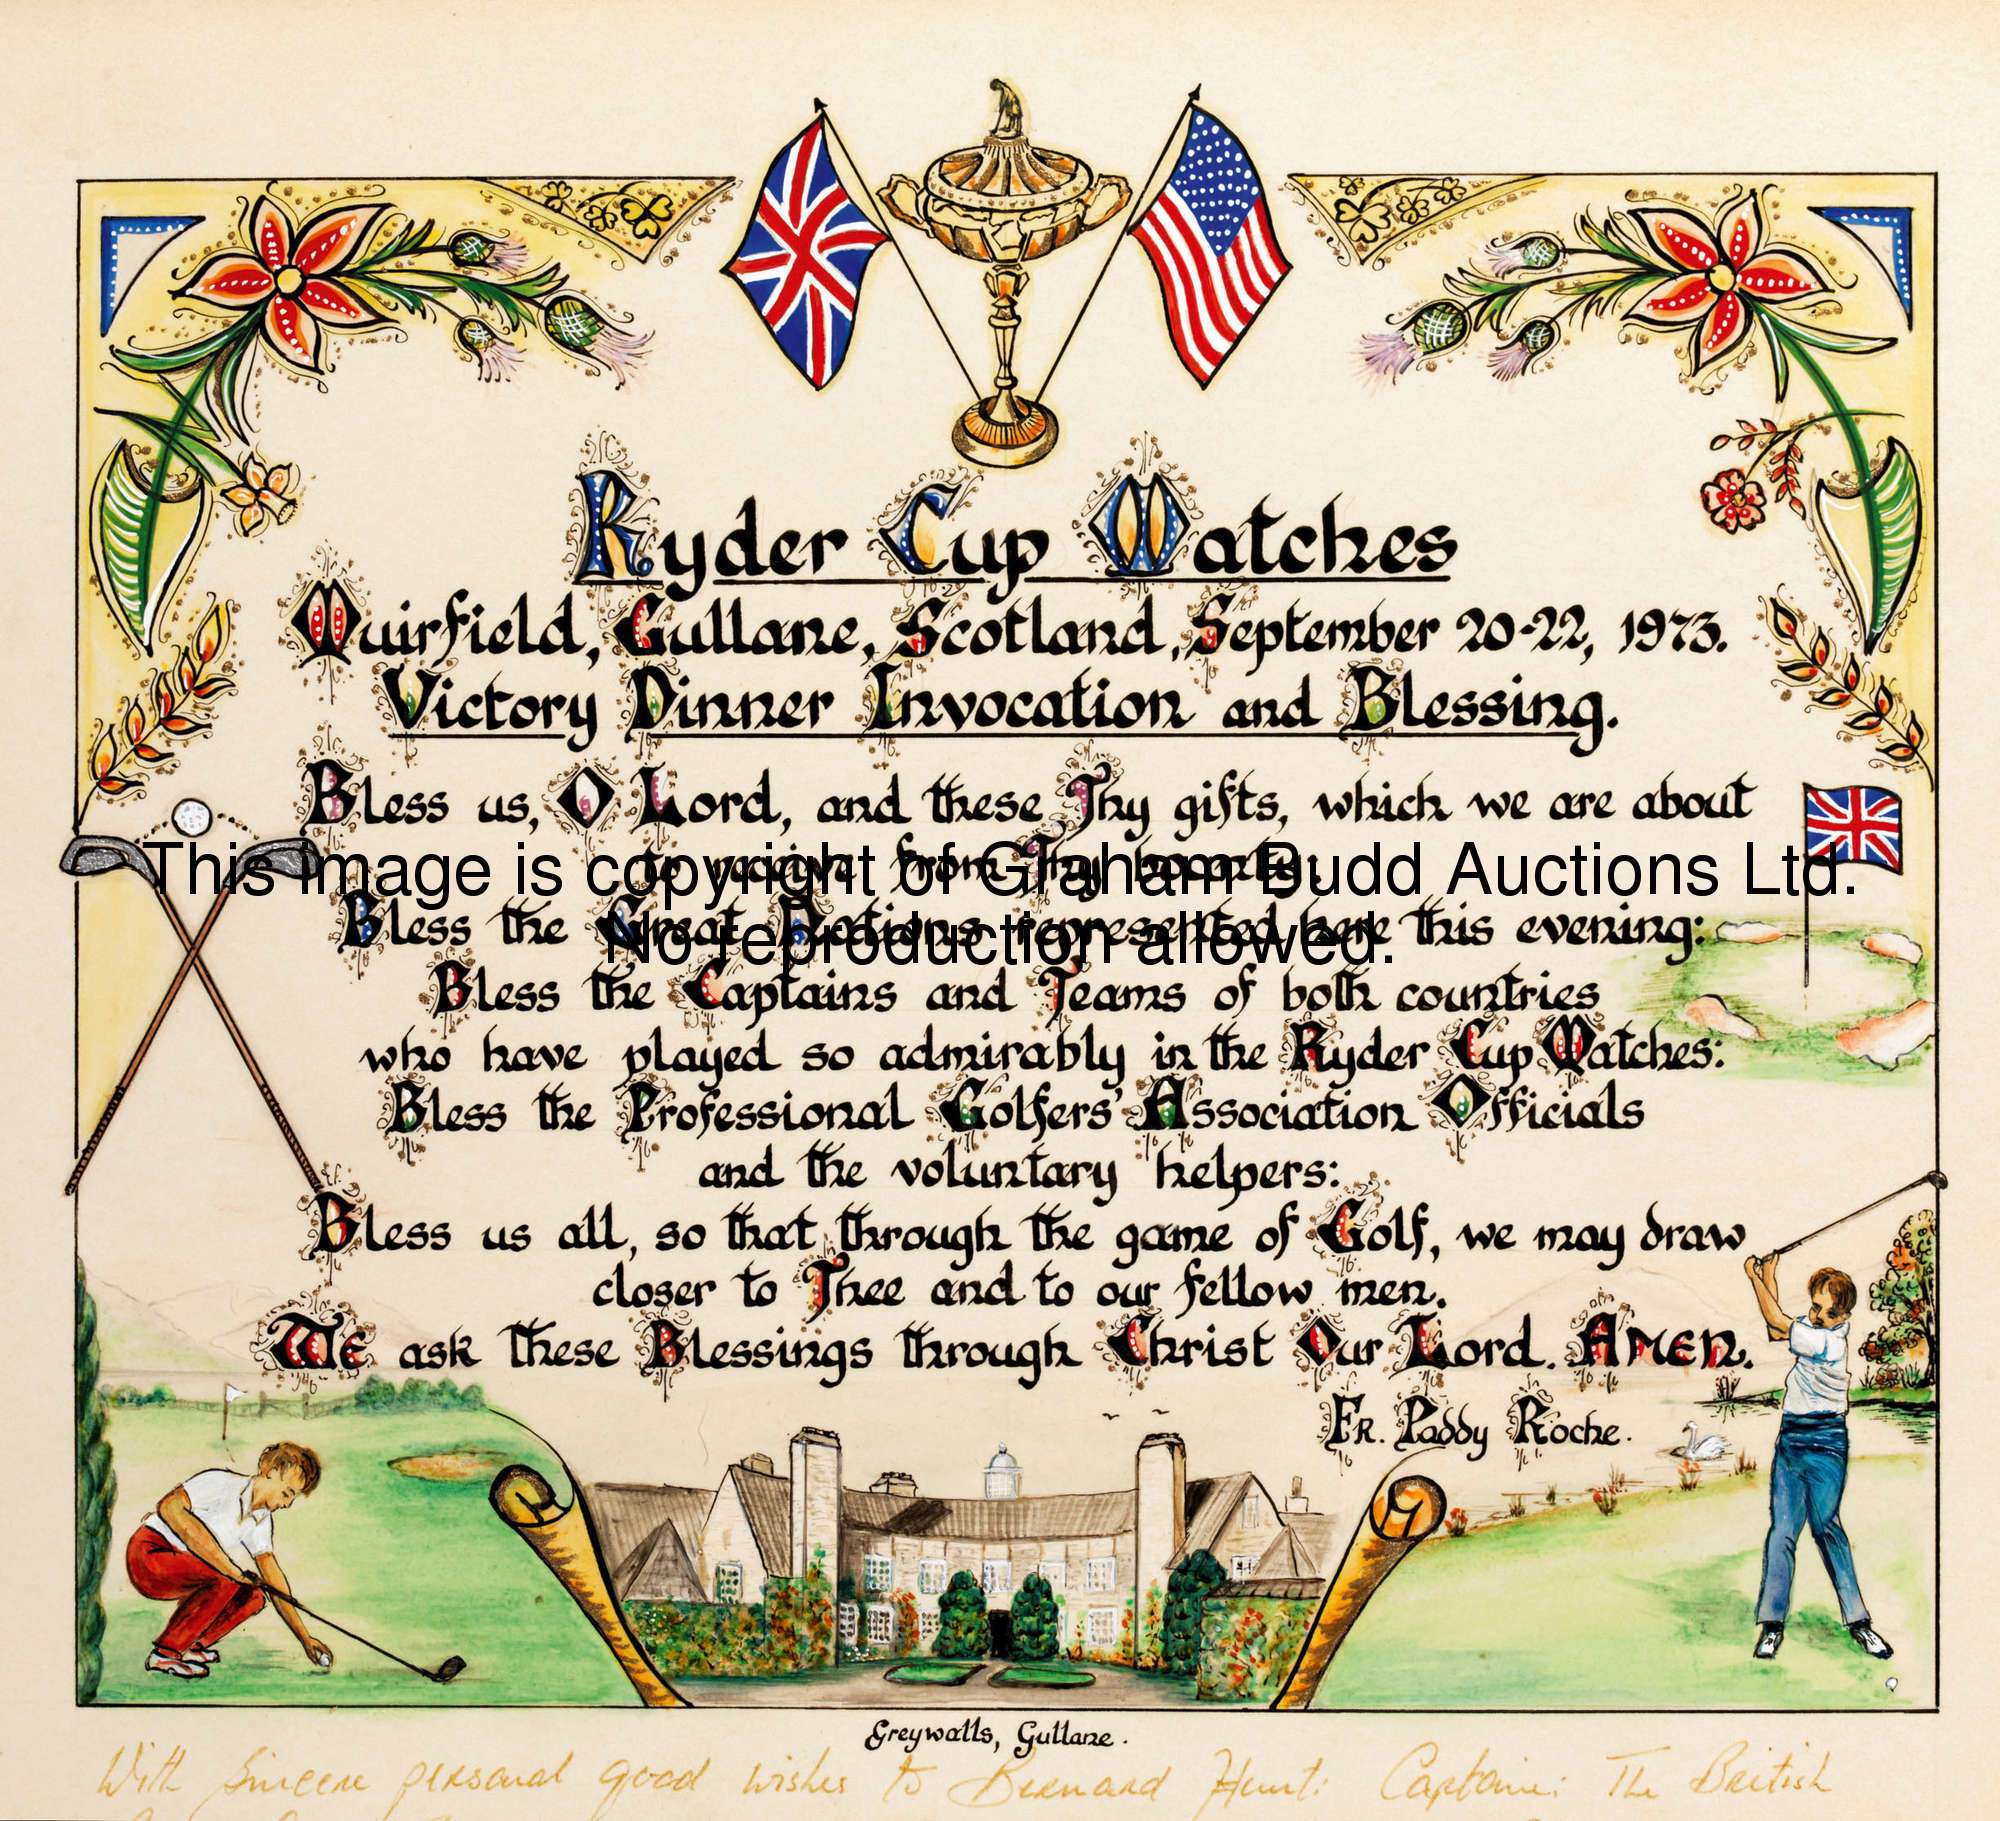 Ryder Cup Matches
Muirfield, Gullane, Scotland, September 20-22, 1973.
Victory Dinner Invocation and Blessing.
Bless us, O Lord, and these Thy gifts, which we are about
to receive from Thy bounty:
This image is copyright of Graham Budd Auctions Ltd.
Bless the Great Nations represented here this evening:
No reproduction allowed.
Bless the Captains and Teams of both countries
who have played so admirably in the Ryder Cup Matches:
Bless the Professional Golfers' Association Officials
and the voluntary helpers:
Bless us all, so that through the game of Golf, we may draw
closer to Thee and to our fellow men.
We ask these Blessings through Christ Our Lord. Amen.
Fr. Paddy Roche.
Greywalls, Gullane.
With sincere personal good wishes to Bernard Hunt: Captain: The British